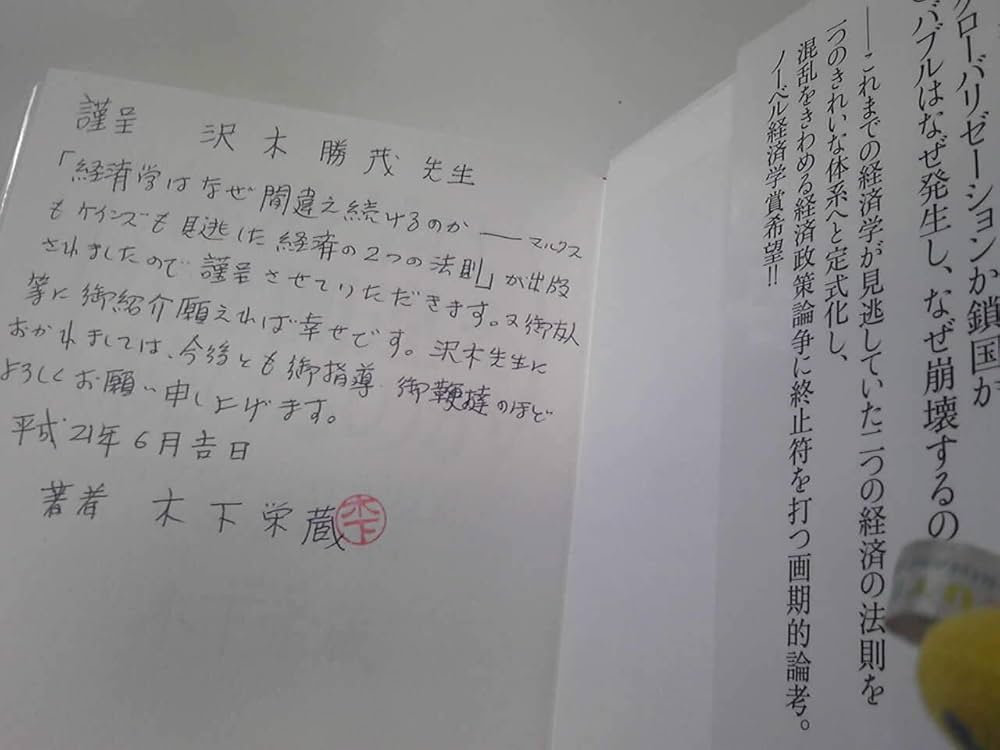 謹呈　沢木勝茂先生
「経済学はなぜ間違え続けるのか――マルクス
もケインズも見逃した経済の2つの法則」が出版
されましたので謹呈させていただきます。又御友人
等に御紹介願えれば幸せです。沢木先生に
おかれましては、今後とも御指導 御鞭撻のほど
よろしくお願い申し上げます。
平成21年6月吉日
著者　木下栄蔵
木下
グローバリゼーションか鎖国か
バブルはなぜ発生し、なぜ崩壊するの
――これまでの経済学が見逃していた二つの経済の法則を
一つのきれいな体系へと定式化し、
混乱をきわめる経済政策論争に終止符を打つ画期的論考。
ノーベル経済学賞希望!!